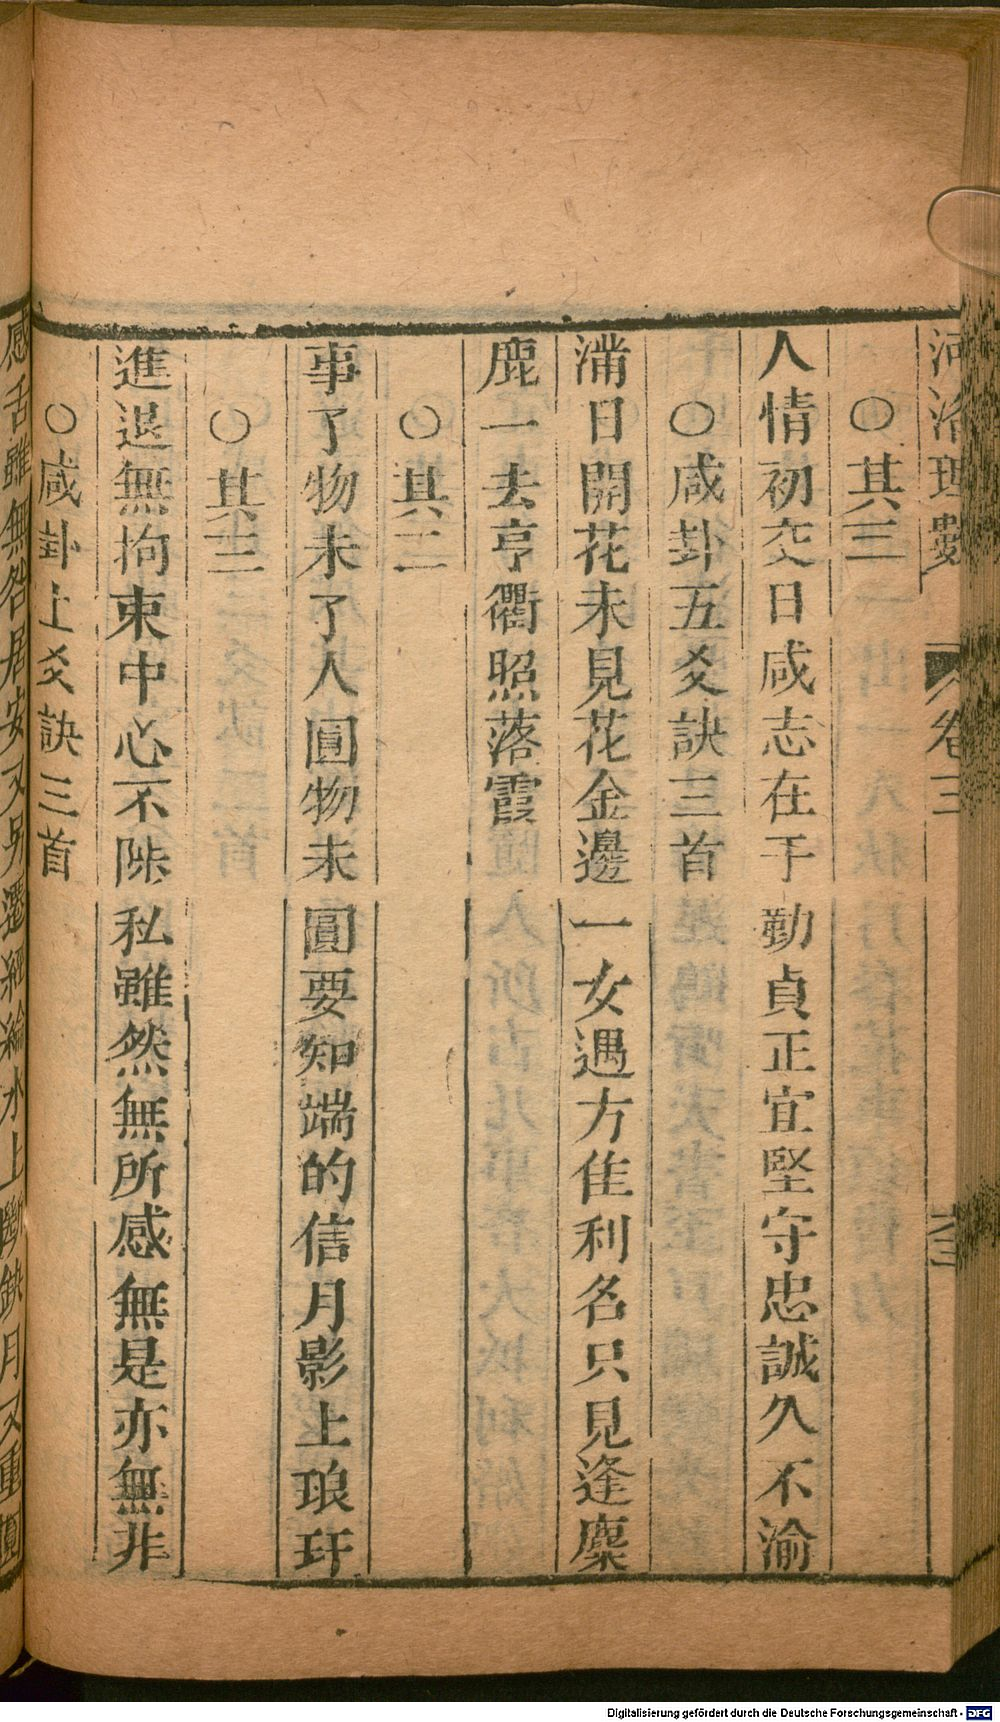 河洛理數 卷三 六三
○其三
人情初交日咸志在于勤貞正宜堅守忠誠久不渝
○咸卦五爻訣三首
滿日開花未見花金邊一女遇方佳利名只見逢麋
鹿一去亨衢照落霞
○其二
事了物未了人圓物未圓要知端的信月影上琅玕
○其三
進退無拘束中心不陟私雖然無所感無是亦無非
○咸卦上爻訣三首
感舌雖無咎居安又另遷經綸水上斷缺月又重圓
Digitalisierung gefördert durch die Deutsche Forschungsgemeinschaft - DFG